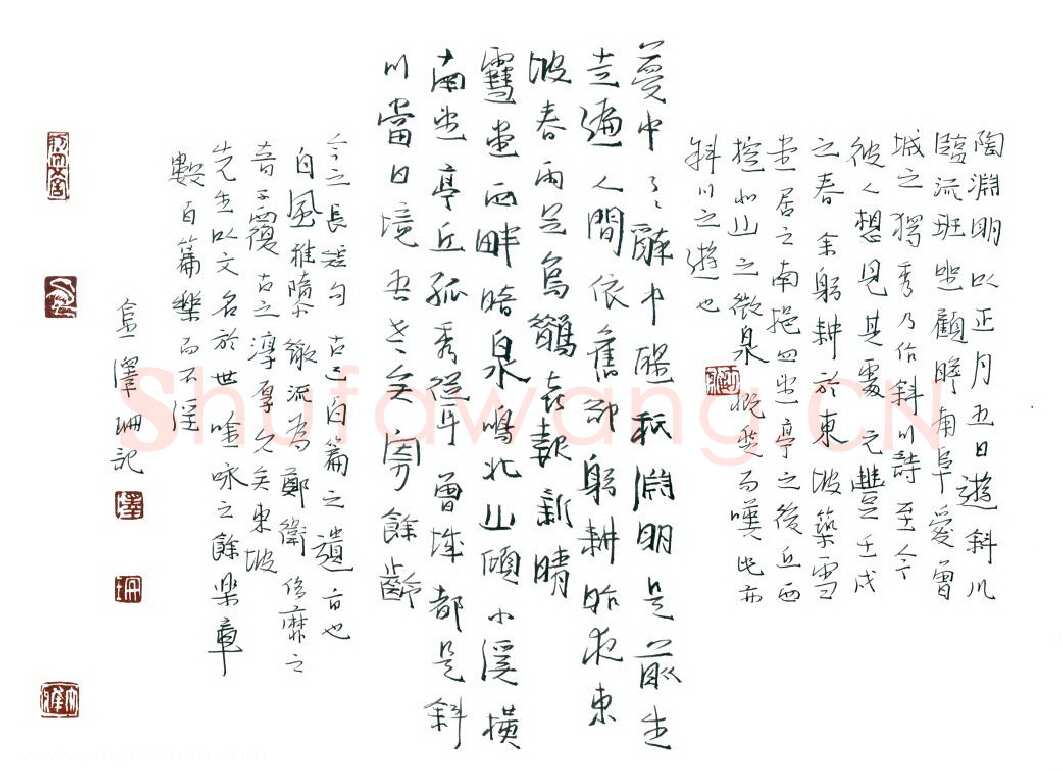 陶淵明以正月五日遊斜川
臨流班坐顧睇南阜愛曾
城之獨秀乃作斜川詩至今
使人想見其處元豐壬戌
之春余躬耕於東坡築雪
堂居之南挹四望亭之後丘西
控北山之微泉慨然而嘆此亦
斜川之遊也
夢中了了醉中醒秖淵明是前生
走遍人間依舊卻躬耕昨夜東
坡春雨足烏鵲喜報新晴
雪堂西畔暗泉鳴北山傾小溪橫
南望亭丘孤秀聳曾城都是斜
川當日境吾老矣寄餘齡
今之長短句古三百篇之遺旨也
自風雅隳散流為鄭衛侈靡之
音不復古之淳厚久矣東坡
先生以文名於世吟詠之餘樂章
數百篇樂而不淫
金澤珊記
澤
珊
Shufawang.CN